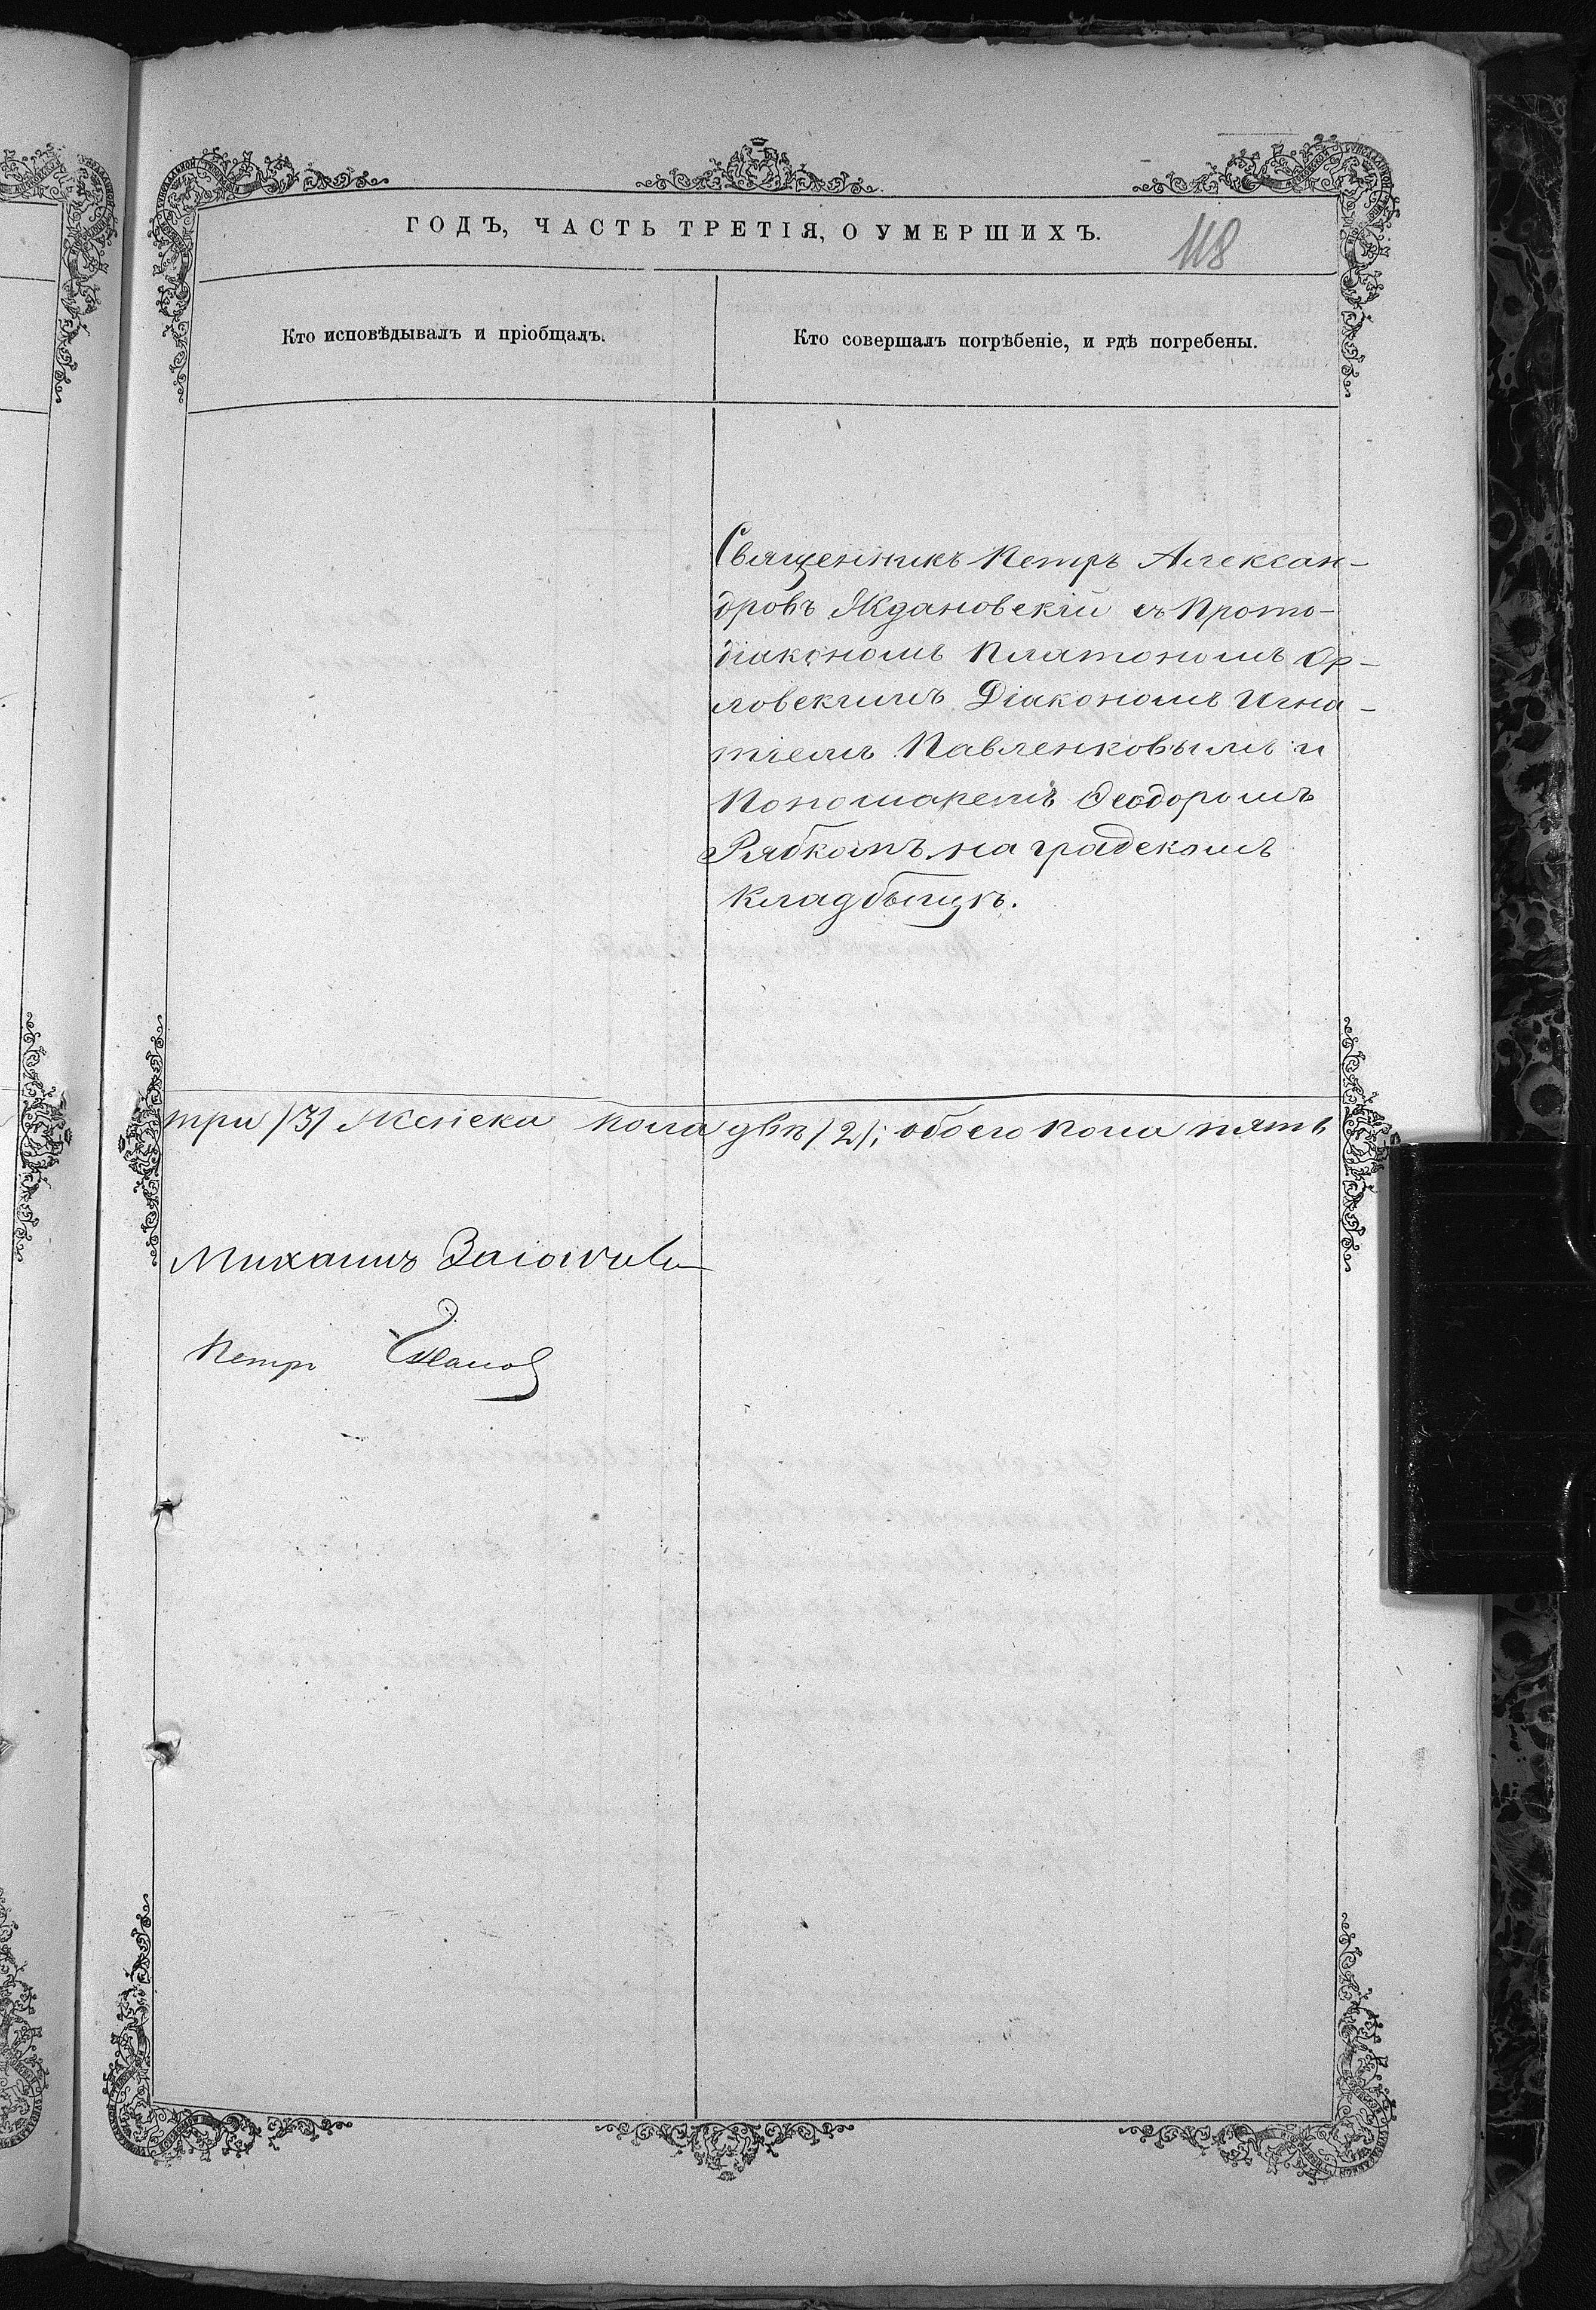 ГОДЪ, ЧАСТЬ ТРЕТІЯ, О УМЕРШИХЪ.
118
Кто исповѣдывалъ и пріобщалъ.
Кто совершалъ погрѣбеніе, и гдѣ погребены.
Священникъ Петръ Алексан-
дровъ Ждановскій съ Прото-
діакономъ Платономъ Ор-
ловскимъ Діакономъ Игна-
тіемъ Павленковымъ и
Пономаремъ Ѳеодоромъ
Рябкомъ на градскомъ
кладбыщѣ.
три /3/ женска пола двѣ /2/; обоего пола пять
Михаилъ
Петръ